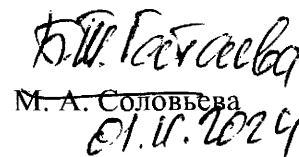 Б.Ш. Гатаева
М. А. Соловьева
01.11.2024